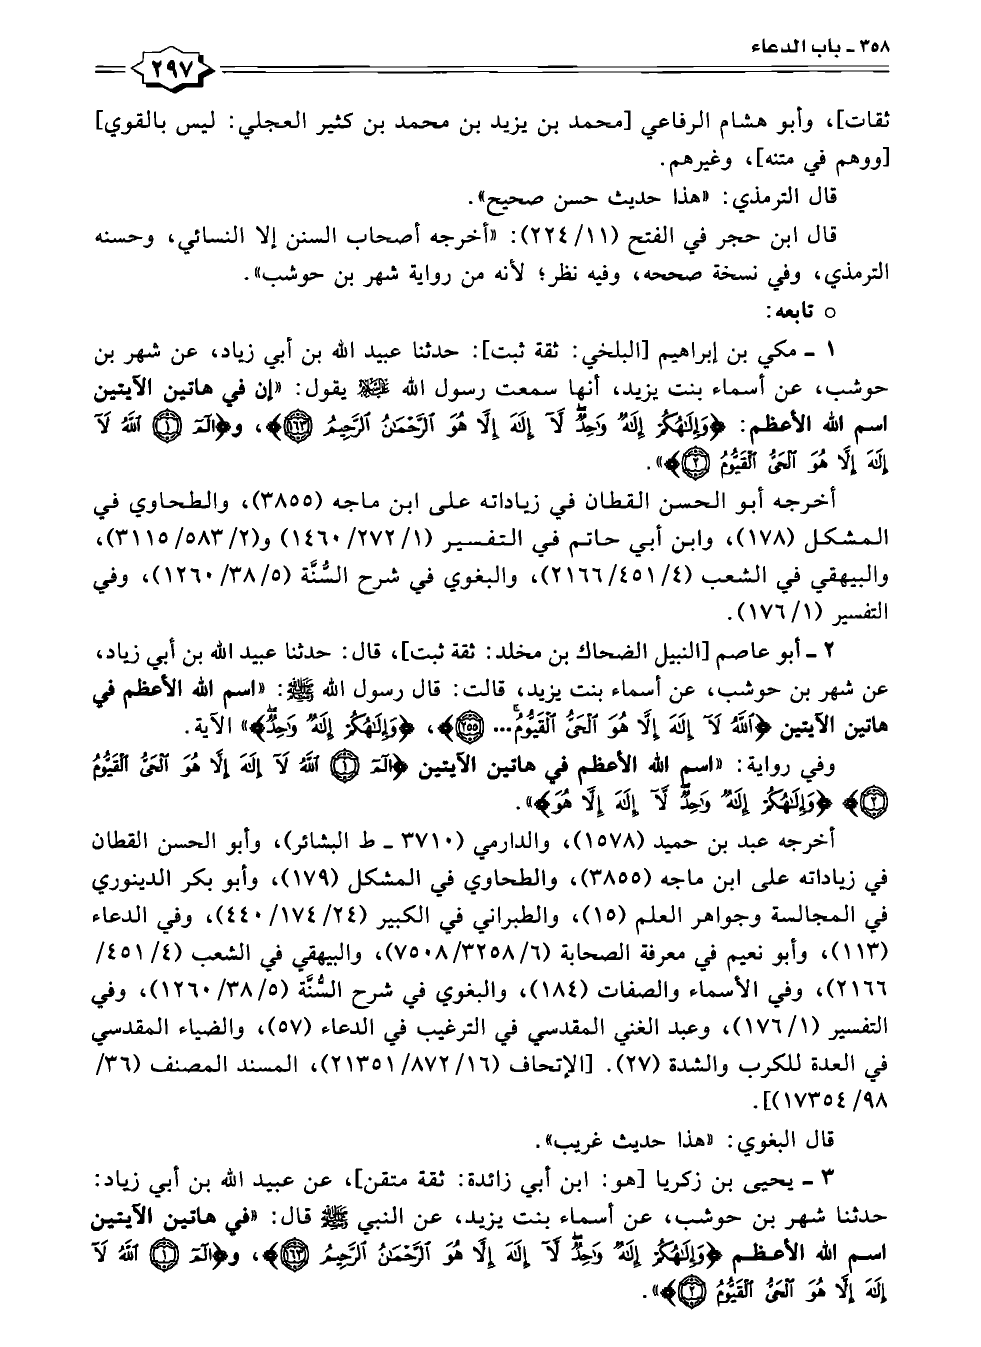 ٣٥٨ - باب الدعاء
٢٩٧
ثقات]، وأبو هشام الرفاعي [محمد بن يزيد بن محمد بن كثير العجلي: ليس بالقوي]
[ووهم في متنه]، وغيرهم.
قال الترمذي: «هذا حديث حسن صحيح».
قال ابن حجر في الفتح (٢٢٤/١١): «أخرجه أصحاب السنن إلا النسائي، وحسنه
الترمذي، وفي نسخة صححه، وفيه نظر؛ لأنه من رواية شهر بن حوشب».
○ تابعه:
١ - مكي بن إبراهيم [البلخي: ثقة ثبت]: حدثنا عبيد الله بن أبي زياد، عن شهر بن
حوشب، عن أسماء بنت يزيد، أنها سمعت رسول الله ﷺ يقول: «إن في هاتين الآيتين
اسم الله الأعظم: ﴿وَإِلَٰهُكُمْ إِلَٰهٌ وَٰحِدٌ لَّآ إِلَٰهَ إِلَّا هُوَ ٱلرَّحْمَٰنُ ٱلرَّحِيمُ ١٦٣﴾، و﴿الٓمٓ ١ ٱللَّهُ لَآ
إِلَٰهَ إِلَّا هُوَ ٱلْحَىُّ ٱلْقَيُّومُ ٢﴾».
أخرجه أبو الحسن القطان في زياداته على ابن ماجه (٣٨٥٥)، والطحاوي في
المشكل (١٧٨)، وابن أبي حاتم في التفسير (١٤٦٠/٢٧٢/١) و(٣١١٥/٥٨٣/٢)،
والبيهقي في الشعب (٢١٦٦/٤٥١/٤)، والبغوي في شرح السُّنَّة (١٢٦٠/٣٨/٥)، وفي
التفسير (١٧٦/١).
٢ - أبو عاصم [النبيل الضحاك بن مخلد: ثقة ثبت]، قال: حدثنا عبيد الله بن أبي زياد،
عن شهر بن حوشب، عن أسماء بنت يزيد، قالت: قال رسول الله ﷺ: «اسم الله الأعظم في
هاتين الآيتين ﴿ٱللَّهُ لَآ إِلَٰهَ إِلَّا هُوَ ٱلْحَىُّ ٱلْقَيُّومُ... ٢٥٥﴾، ﴿وَإِلَٰهُكُمْ إِلَٰهٌ وَٰحِدٌ﴾» الآية.
وفي رواية: «اسم الله الأعظم في هاتين الآيتين ﴿الٓمٓ ١ ٱللَّهُ لَآ إِلَٰهَ إِلَّا هُوَ ٱلْحَىُّ ٱلْقَيُّومُ
٢﴾ ﴿وَإِلَٰهُكُمْ إِلَٰهٌ وَٰحِدٌ لَّآ إِلَٰهَ إِلَّا هُوَ﴾».
أخرجه عبد بن حميد (١٥٧٨)، والدارمي (٣٧١٠ - ط البشائر)، وأبو الحسن القطان
في زياداته على ابن ماجه (٣٨٥٥)، والطحاوي في المشكل (١٧٩)، وأبو بكر الدينوري
في المجالسة وجواهر العلم (١٥)، والطبراني في الكبير (٤٤٠/١٧٤/٢٤)، وفي الدعاء
(١١٣)، وأبو نعيم في معرفة الصحابة (٧٥٠٨/٣٢٥٨/٦)، والبيهقي في الشعب (٤/ ٤٥١/
٢١٦٦)، وفي الأسماء والصفات (١٨٤)، والبغوي في شرح السُّنَّة (١٢٦٠/٣٨/٥)، وفي
التفسير (١٧٦/١)، وعبد الغني المقدسي في الترغيب في الدعاء (٥٧)، والضياء المقدسي
في العدة للكرب والشدة (٢٧). [الإتحاف (٢١٣٥١/٨٧٢/١٦)، المسند المصنف (٣٦/
١٧٣٥٤/٩٨)].
قال البغوي: «هذا حديث غريب».
٣ - يحيى بن زكريا [هو: ابن أبي زائدة: ثقة متقن]، عن عبيد الله بن أبي زياد:
حدثنا شهر بن حوشب، عن أسماء بنت يزيد، عن النبي ﷺ قال: «في هاتين الآيتين
اسم الله الأعظم ﴿وَإِلَٰهُكُمْ إِلَٰهٌ وَٰحِدٌ لَّآ إِلَٰهَ إِلَّا هُوَ ٱلرَّحْمَٰنُ ٱلرَّحِيمُ ١٦٣﴾، و﴿الٓمٓ ١ ٱللَّهُ لَآ
إِلَٰهَ إِلَّا هُوَ ٱلْحَىُّ ٱلْقَيُّومُ ٢﴾».